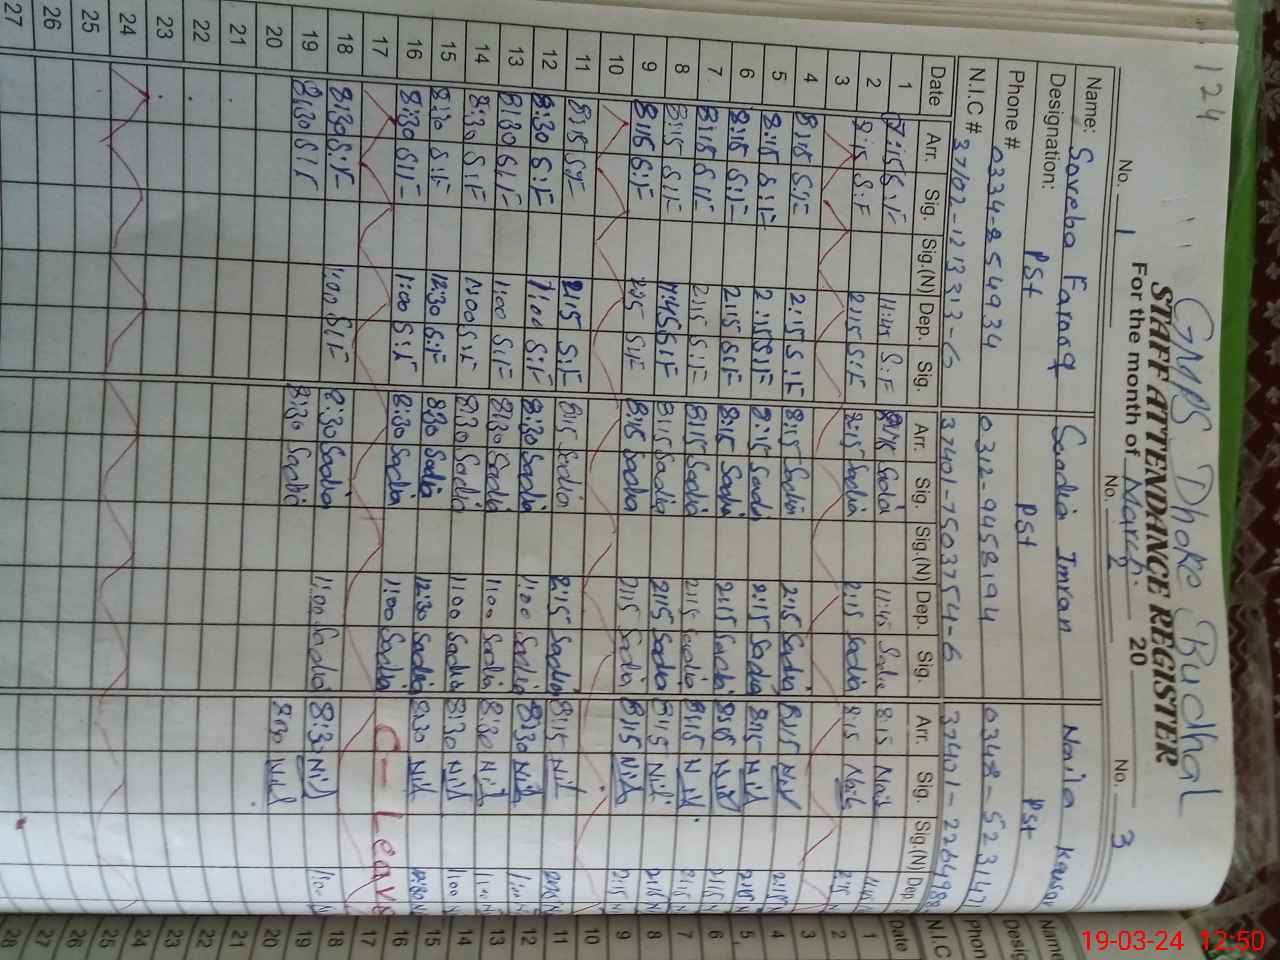 124
GMPS Dhoke Budhal
STAFF ATTENDANCE REGISTER
For the month of March 20
No. 1 No. 2 No. 3
Name: Saveba Farooq Saadia Imran Naila Kausar
Designation: PST PST PST
Phone # 0334-8549934 0312-9458194 0348-5231471
N.I.C # 37102-1213313-6 37401-7503754-6 37401-2264988
Date Arr. Sig. Sig.(N) Dep. Sig. Arr. Sig. Sig.(N) Dep. Sig. Arr. Sig. Sig.(N) Dep
1 8:15 S:F 11:45 S:F 8:15 Sadia 11:45 Sadia 8:15 Naila 11:45
2 8:15 S:F 2:15 S:F 8:15 Sadia 2:15 Sadia 8:15 Naila 2:15
3
4 8:15 S:F 2:15 S:F 8:15 Sadia 2:15 Sadia 8:15 Nil 2:15
5 8:15 S:F 2:15 S:F 8:15 Sadia 2:15 Sadia 8:15 Nil 2:15 N
6 8:15 S:F 2:15 S:F 8:15 Sadia 2:15 Sadia 8:15 Nil 2:15 N
7 8:15 S:F 2:15 S:F 8:15 Sadia 2:15 Sadia 8:15 Nil 2:15 N
8 8:15 S:F S:F 8:15 Sadia 2:15 Sadia 8:15 Nil 2:15 N
9 8:15 S:F 2:15 S:F 8:15 Sadia 2:15 Sadia 8:15 Nil 2:15 N
10
11 8:15 S:F 2:15 S:F 8:15 Sadia 2:15 Sadia 8:15 Nil 2:15
12 8:30 S:F 1:00 S:F 8:30 Sadia 1:00 Sadia 8:30 Nil 1:00 N
13 8:30 S:F 1:00 S:F 8:30 Sadia 1:00 Sadia 8:30 Nil 1:00 N
14 8:30 S:F 1:00 S:F 8:30 Sadia 1:00 Sadia 8:30 Nil 1:00 N
15 8:30 S:F 12:30 S:F 8:30 Sadia 12:30 Sadia 8:30 Nil 12:30 N
16 8:30 S:F 1:00 S:F 8:30 Sadia 1:00 Sadia C-Leave
17
18 8:30 S:F 1:00 S:F 8:30 Sadia 1:00 Sadia 8:30 Nil 1:00 N
19 8:30 S:F 8:30 Sadia 8:30 Nil
20
21
22
23
24
25
26
27
Name
Desig
Phon
N.I.C
Date
1
2
3
4
5
6
7
8
9
10
11
12
13
14
15
16
17
18
19
20
21
22
23
24
25
26
27
28
19-03-24 12:50